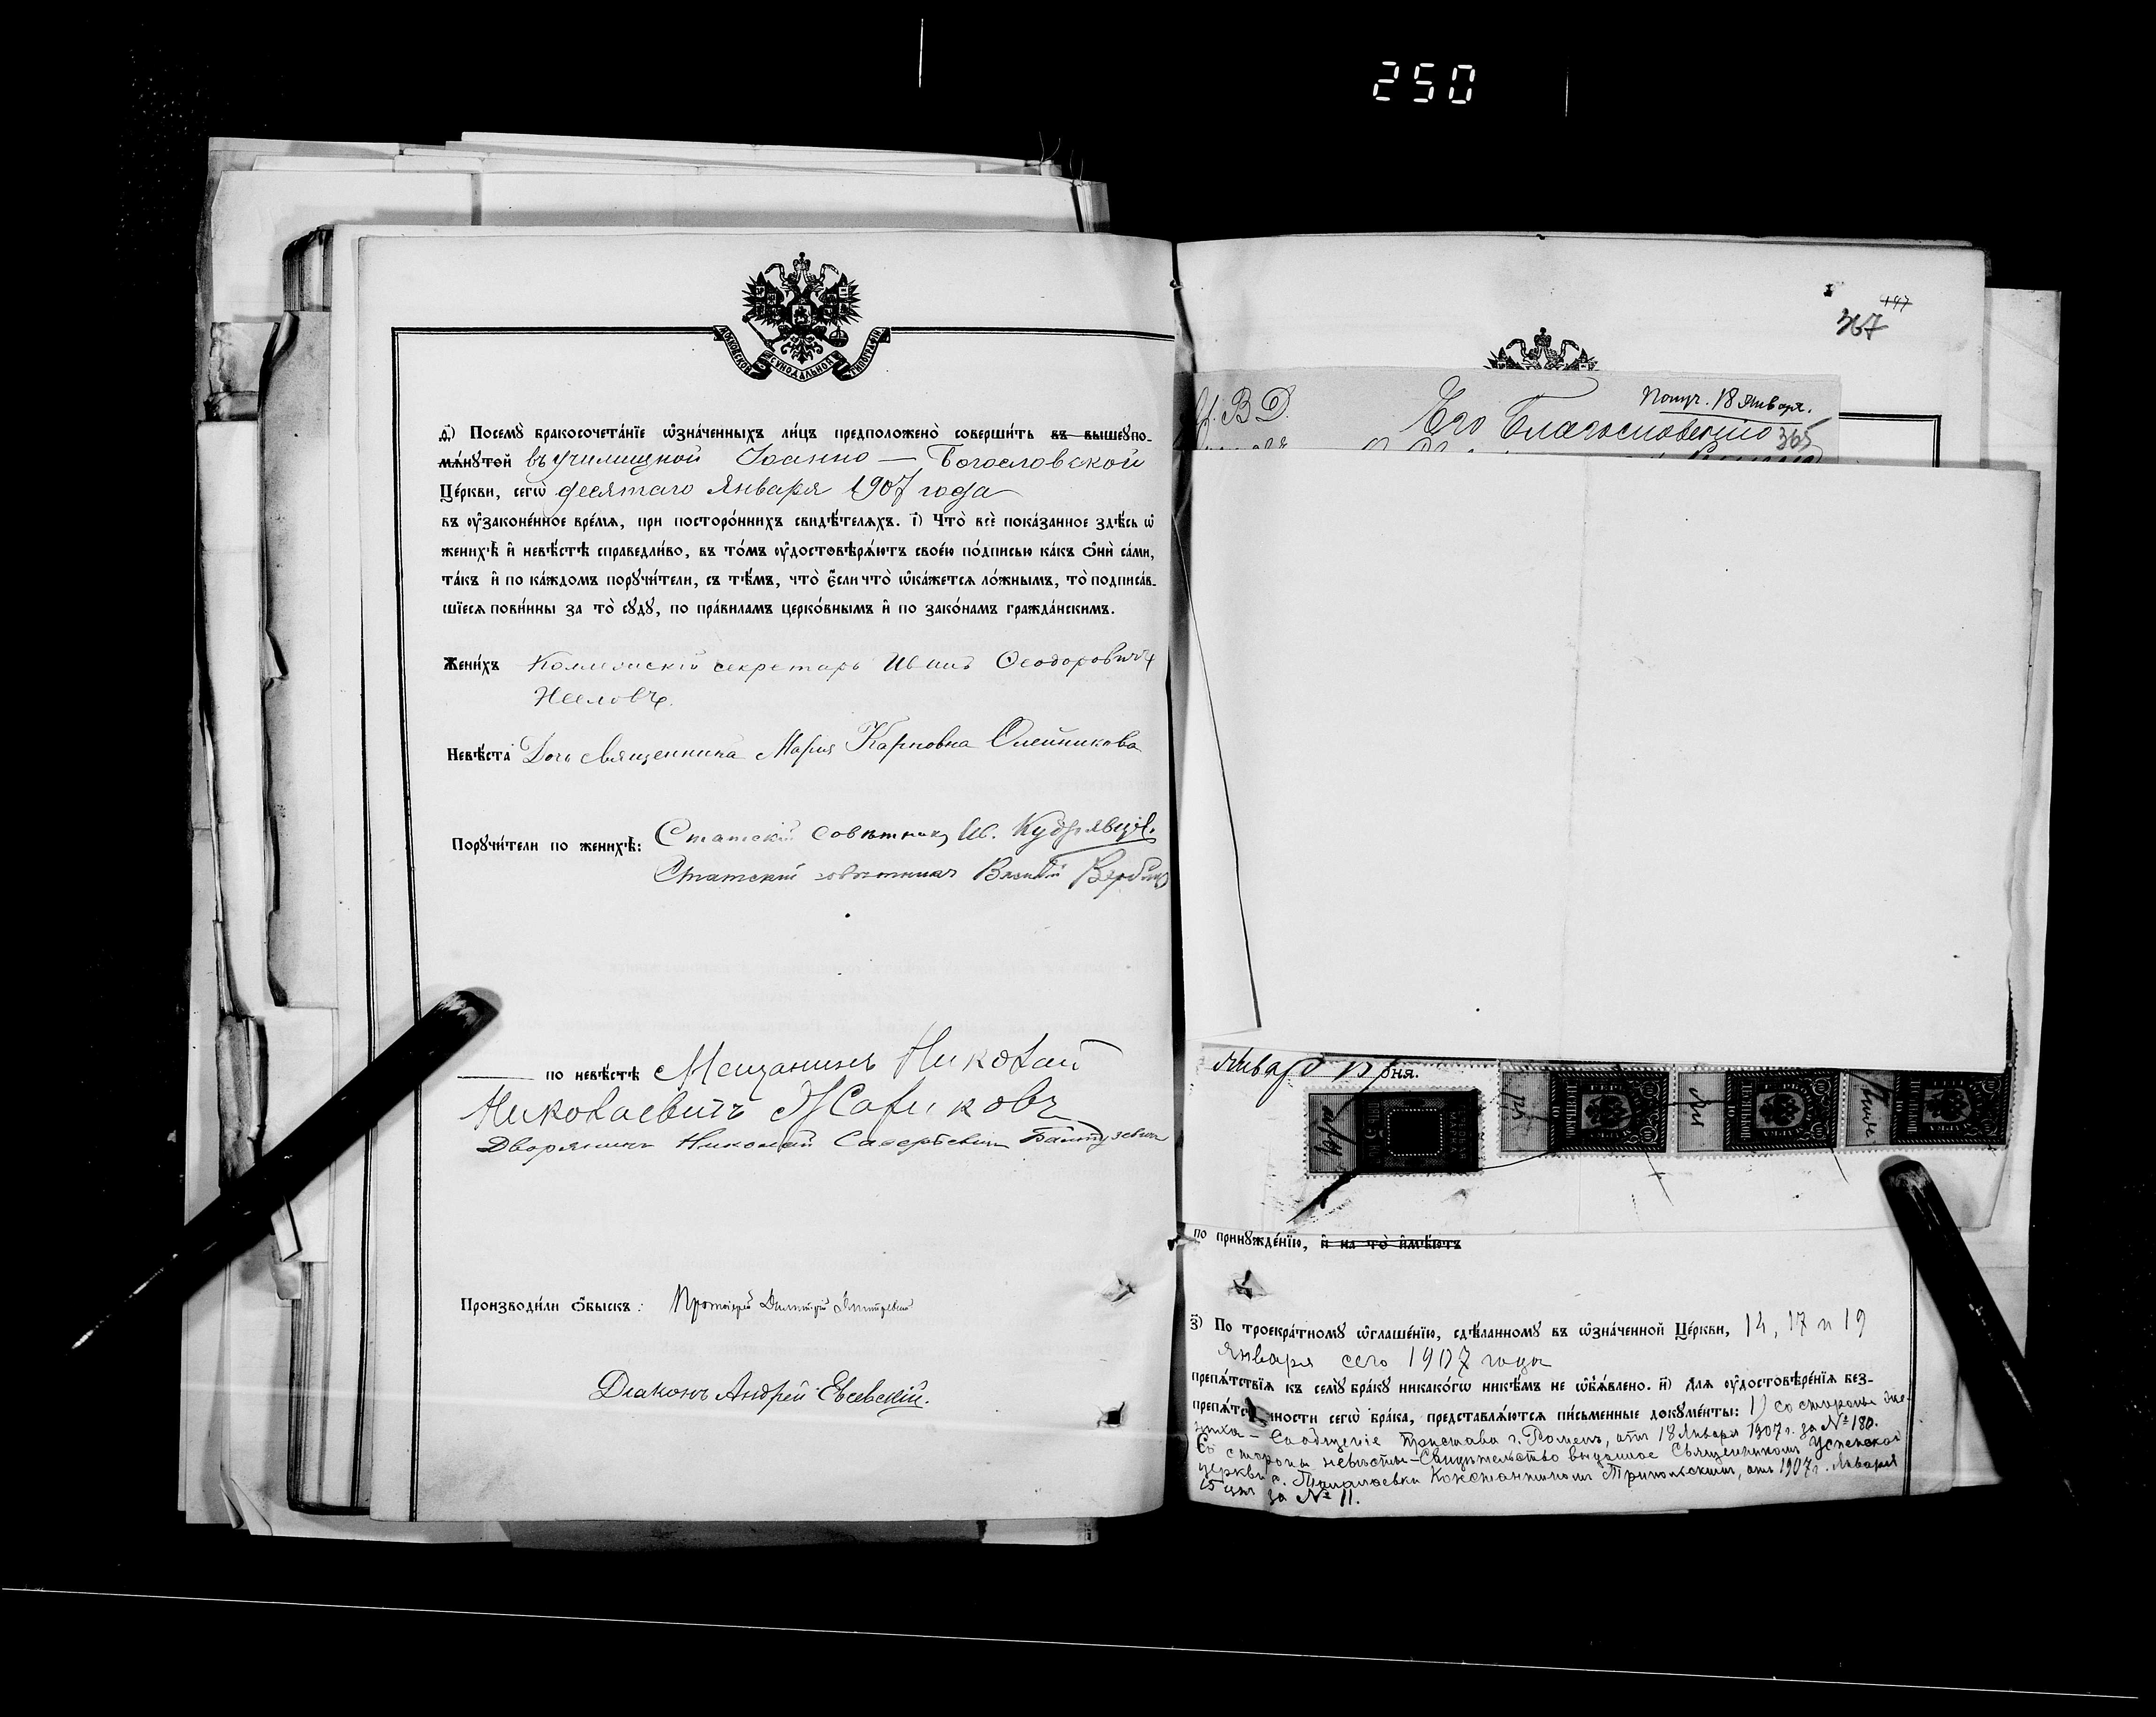 250
МОСКОВСКОЙ СѴНОДАЛЬНОЙ ТИПОГРАФІИ
Посемꙋ̀ бракосочета́нїе ѡ҆зна́ченныхъ ли́цъ предположено̀ соверши́ть въ вышеꙋпо-
мѧ́нꙋтой въ училищной Іоанно - Богословской
Це́ркви, сегѡ̀ десятаго Января 1907 года
въ ᲂу҆зако́ненное вре́мѧ, при посторо́ннихъ свидѣ́телѧхъ. і҃) Что̀ всѐ пока́занное здѣ́сь ѡ҆
женихѣ̀ и҆ невѣ́стѣ справедли́во, въ то́мъ ᲂу҆достовѣрѧ́ютъ свое́ю по́дписью ка́къ ѻ҆нѝ са́ми,
та́къ и҆ по ка́ждомъ порꙋчи́тели, съ тѣ́мъ, что̀ є҆́сли что̀ ѡ҆ка́жетсѧ ло́жнымъ, то̀ подписа́в-
шїесѧ пови́нны за то̀ сꙋдꙋ̀, по пра́виламъ церко́внымъ и҆ по зако́намъ гражда́нскимъ.
Жени́хъ Коллежскій секретарь Иванъ Ѳеодоровичъ
Нееловъ.
Невѣ́ста Дочь священника Марія Карповна Олейникова
Порꙋчи́тели по женихѣ̀: Статскій Совѣтникъ Ив. Кудрявцев.
Статскій совѣтникъ Василій
по невѣ́стѣ Мещанинъ Николай
Николаевичъ Жариковъ
Дворянинъ Николай
Производи́ли ѻ҆́быскъ: Протоіерей Димитрій
Діаконъ Андрей Евсевскій.
197
367
В Д.
Получ. 18 января.
Его Благословенію 365
января дня.
по принꙋжде́нїю, и҆ на то̀ и҆мѣ́ютъ
з҃) По троекра́тномꙋ ѡ҆глаше́нїю, сдѣ́ланномꙋ въ ѡ҆зна́ченной Це́ркви, 14, 17 и 19
Января сего 1907 года
препѧ́тствїѧ къ семꙋ̀ бра́кꙋ никако́гѡ никѣ́мъ не ѡ҆б̾ѧ́влено. и҃) Длѧ ᲂу҆достовѣре́нїѧ без-
препѧ́тственности сегѡ̀ бра́ка, представлѧ́ютсѧ пи́сьменные докꙋме́нты: 1) со стороны же-
ниха - Сообщеніе Пристава г. Роменъ, отъ 18 Января 1907 г. за № 180.
Со стороны невѣсты - Свидѣтельство выданное Священникомъ Успенской
церкви с. Константиномъ Трипольскимъ, отъ 1907 г. Января
15 дня за № 11.